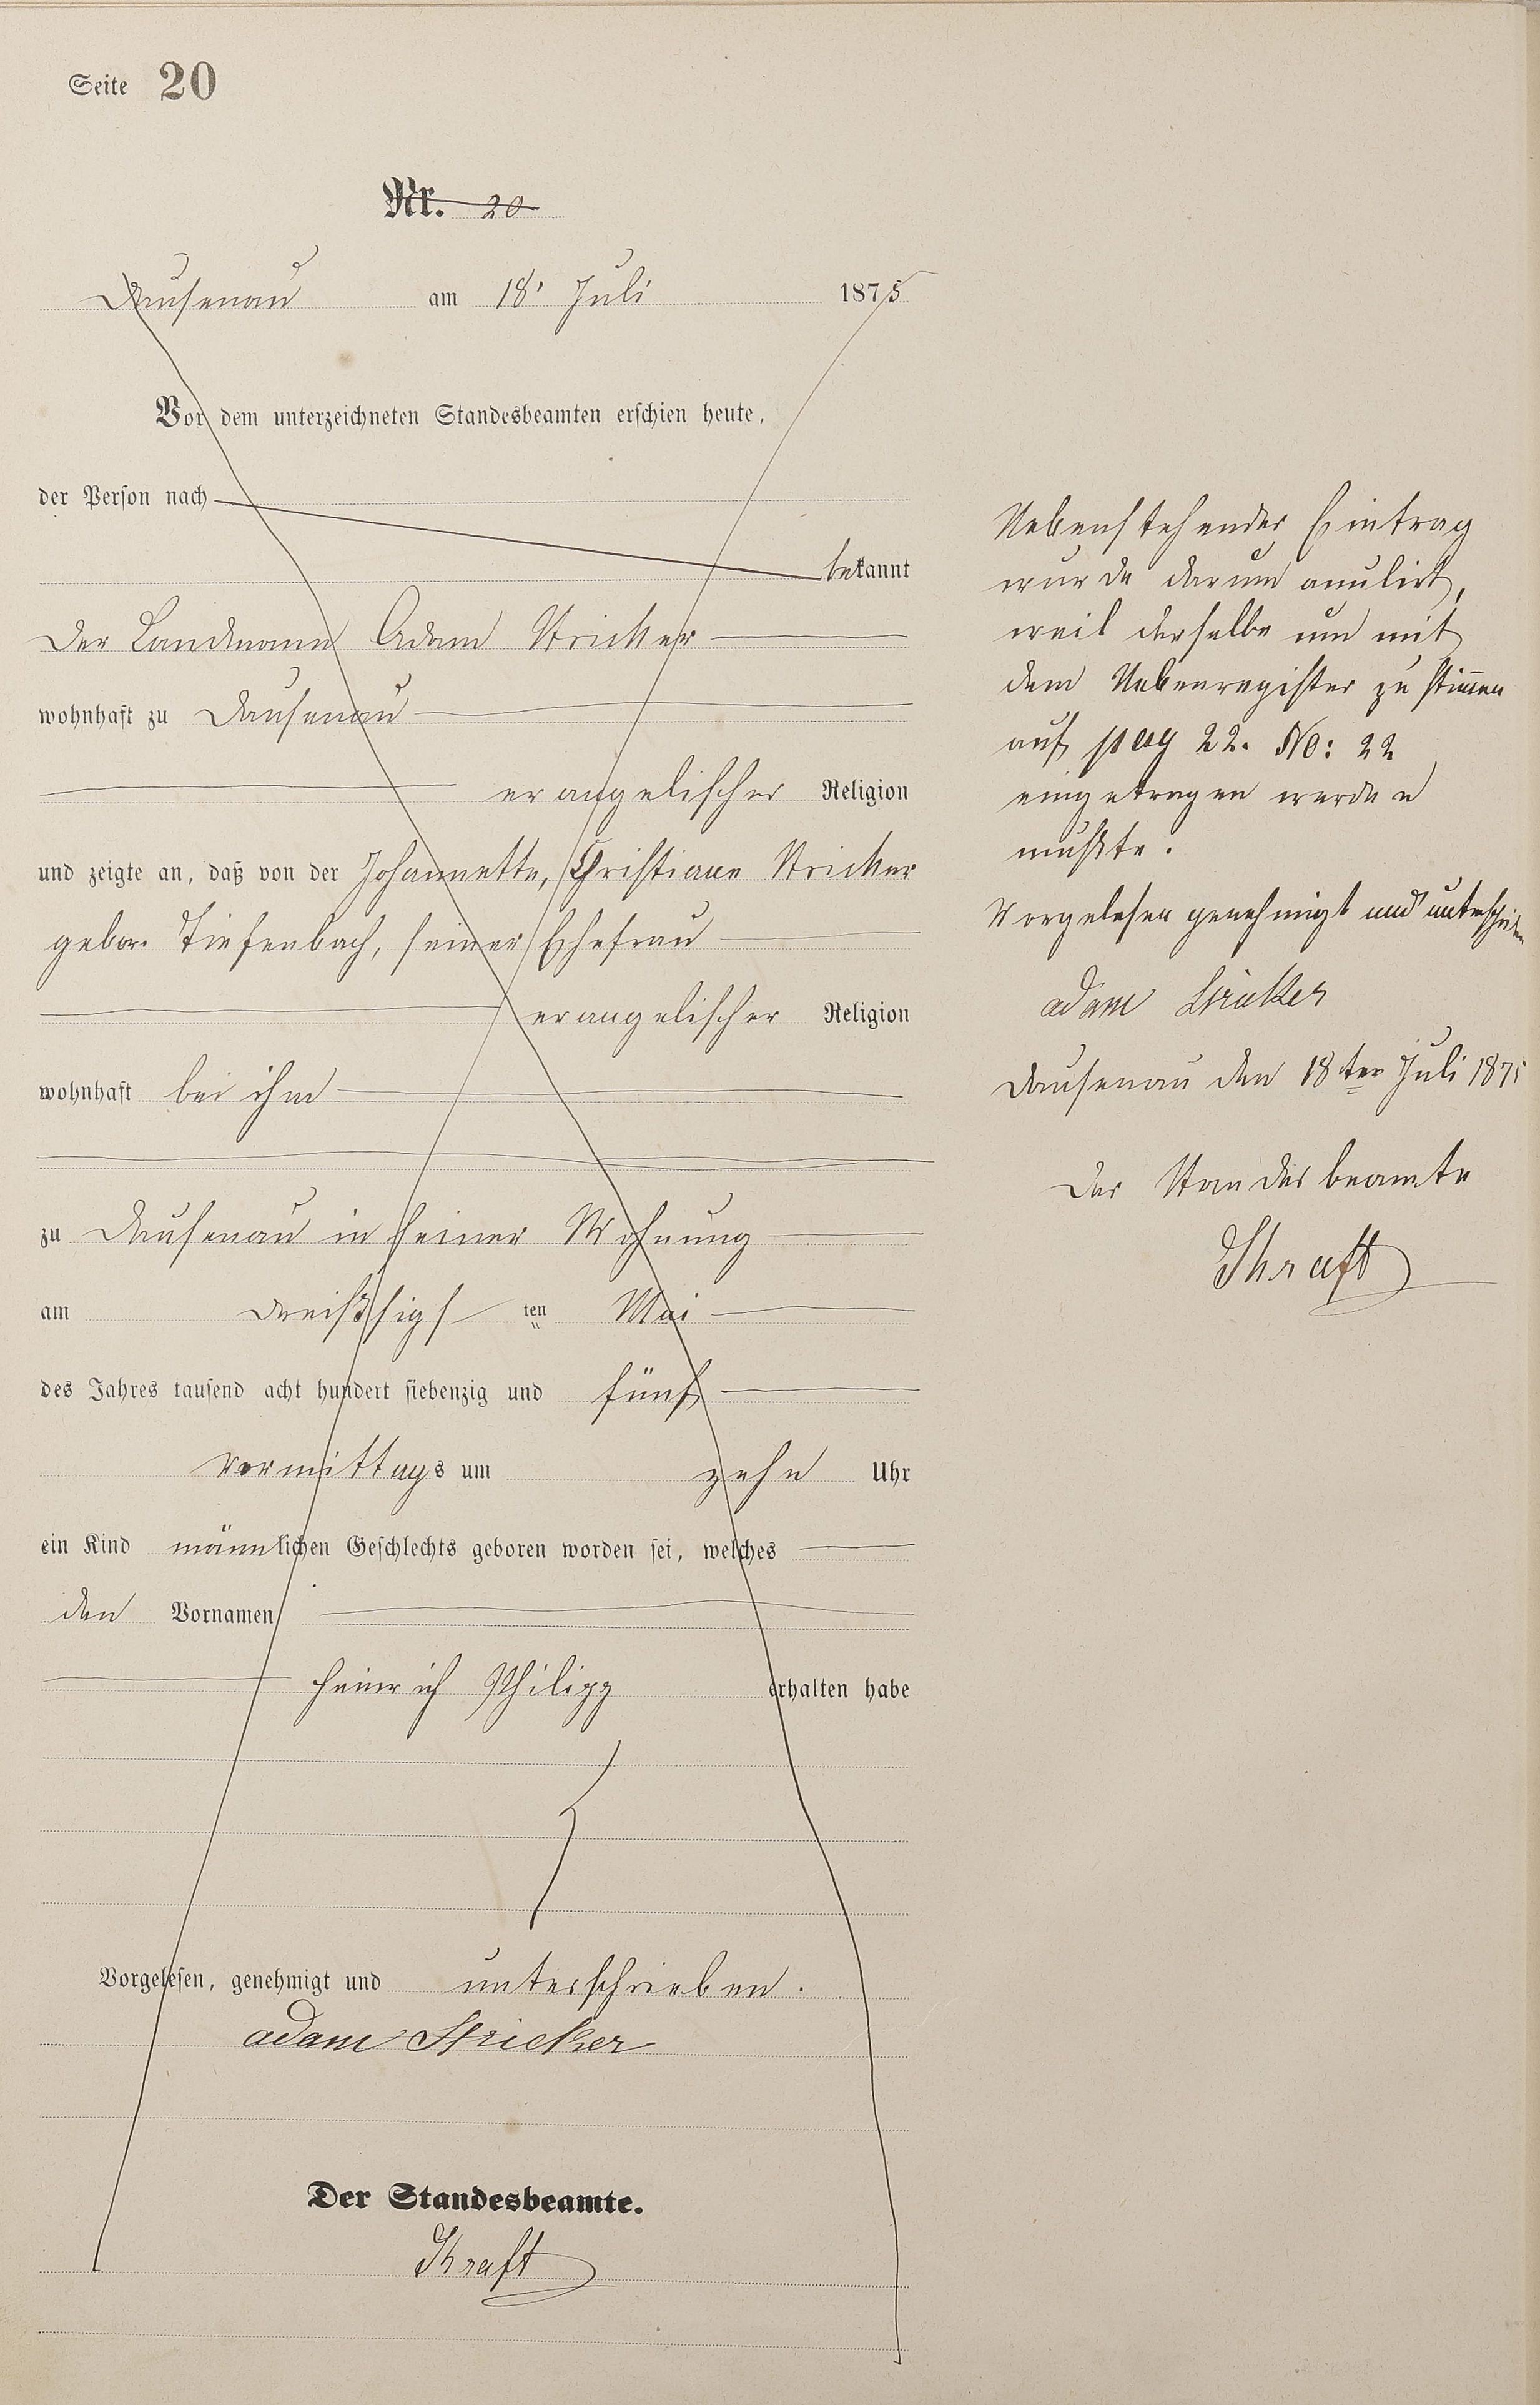 Seite 20
Nr. 20
Dausenau am 18' Juli 1875
Vor dem unterzeichneten Standesbeamten erschien heute,
der Person nach
bekannt
Der Landmann Adam Stricker
wohnhaft zu Dausenau
evangelischer Religion
und zeigte an, daß von der Johannette, Christiane Stricker
gebor. Tiefenbach, seiner Ehefrau
evangelischer Religion
wohnhaft bei ihm
zu Dausenau in seiner Wohnung
am dreißsigs ten Mai
des Jahres tausend acht hundert siebenzig und fünf
Vormittags um zehn Uhr
ein Kind männlichen Geschlechts geboren worden sei, welches
den Vornamen
Heinrich Philipp erhalten habe
Vorgelesen, genehmigt und unterschrieben.
adam Stricker
Der Standesbeamte.
Kraft
Nebenstehender Eintrag
wurde darum anulirt,
weil derselbe um mit
dem Nebenregister zu stimmen
auf pag 22. No: 22
eingetragen werden
mußte.
Vorgelesen genehmigt und unterschrieben
adam Stricker
Dausenau den 18ten Juli 1875
Der Standesbeamte
Kraft